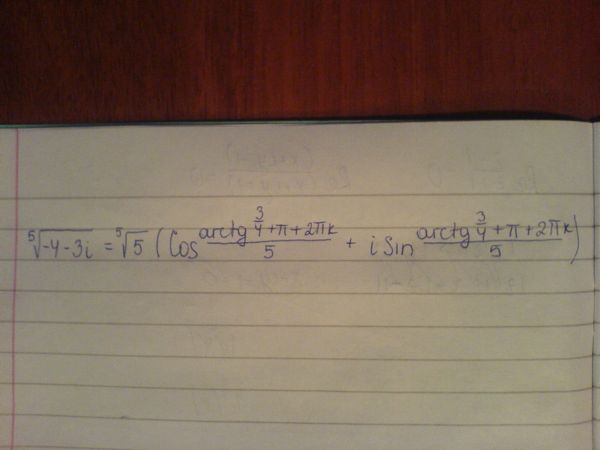 ⁵√-4-3i = ⁵√5 (Cos (arctg 3/4 + π + 2πk)/5 + i Sin (arctg 3/4 + π + 2πk)/5)